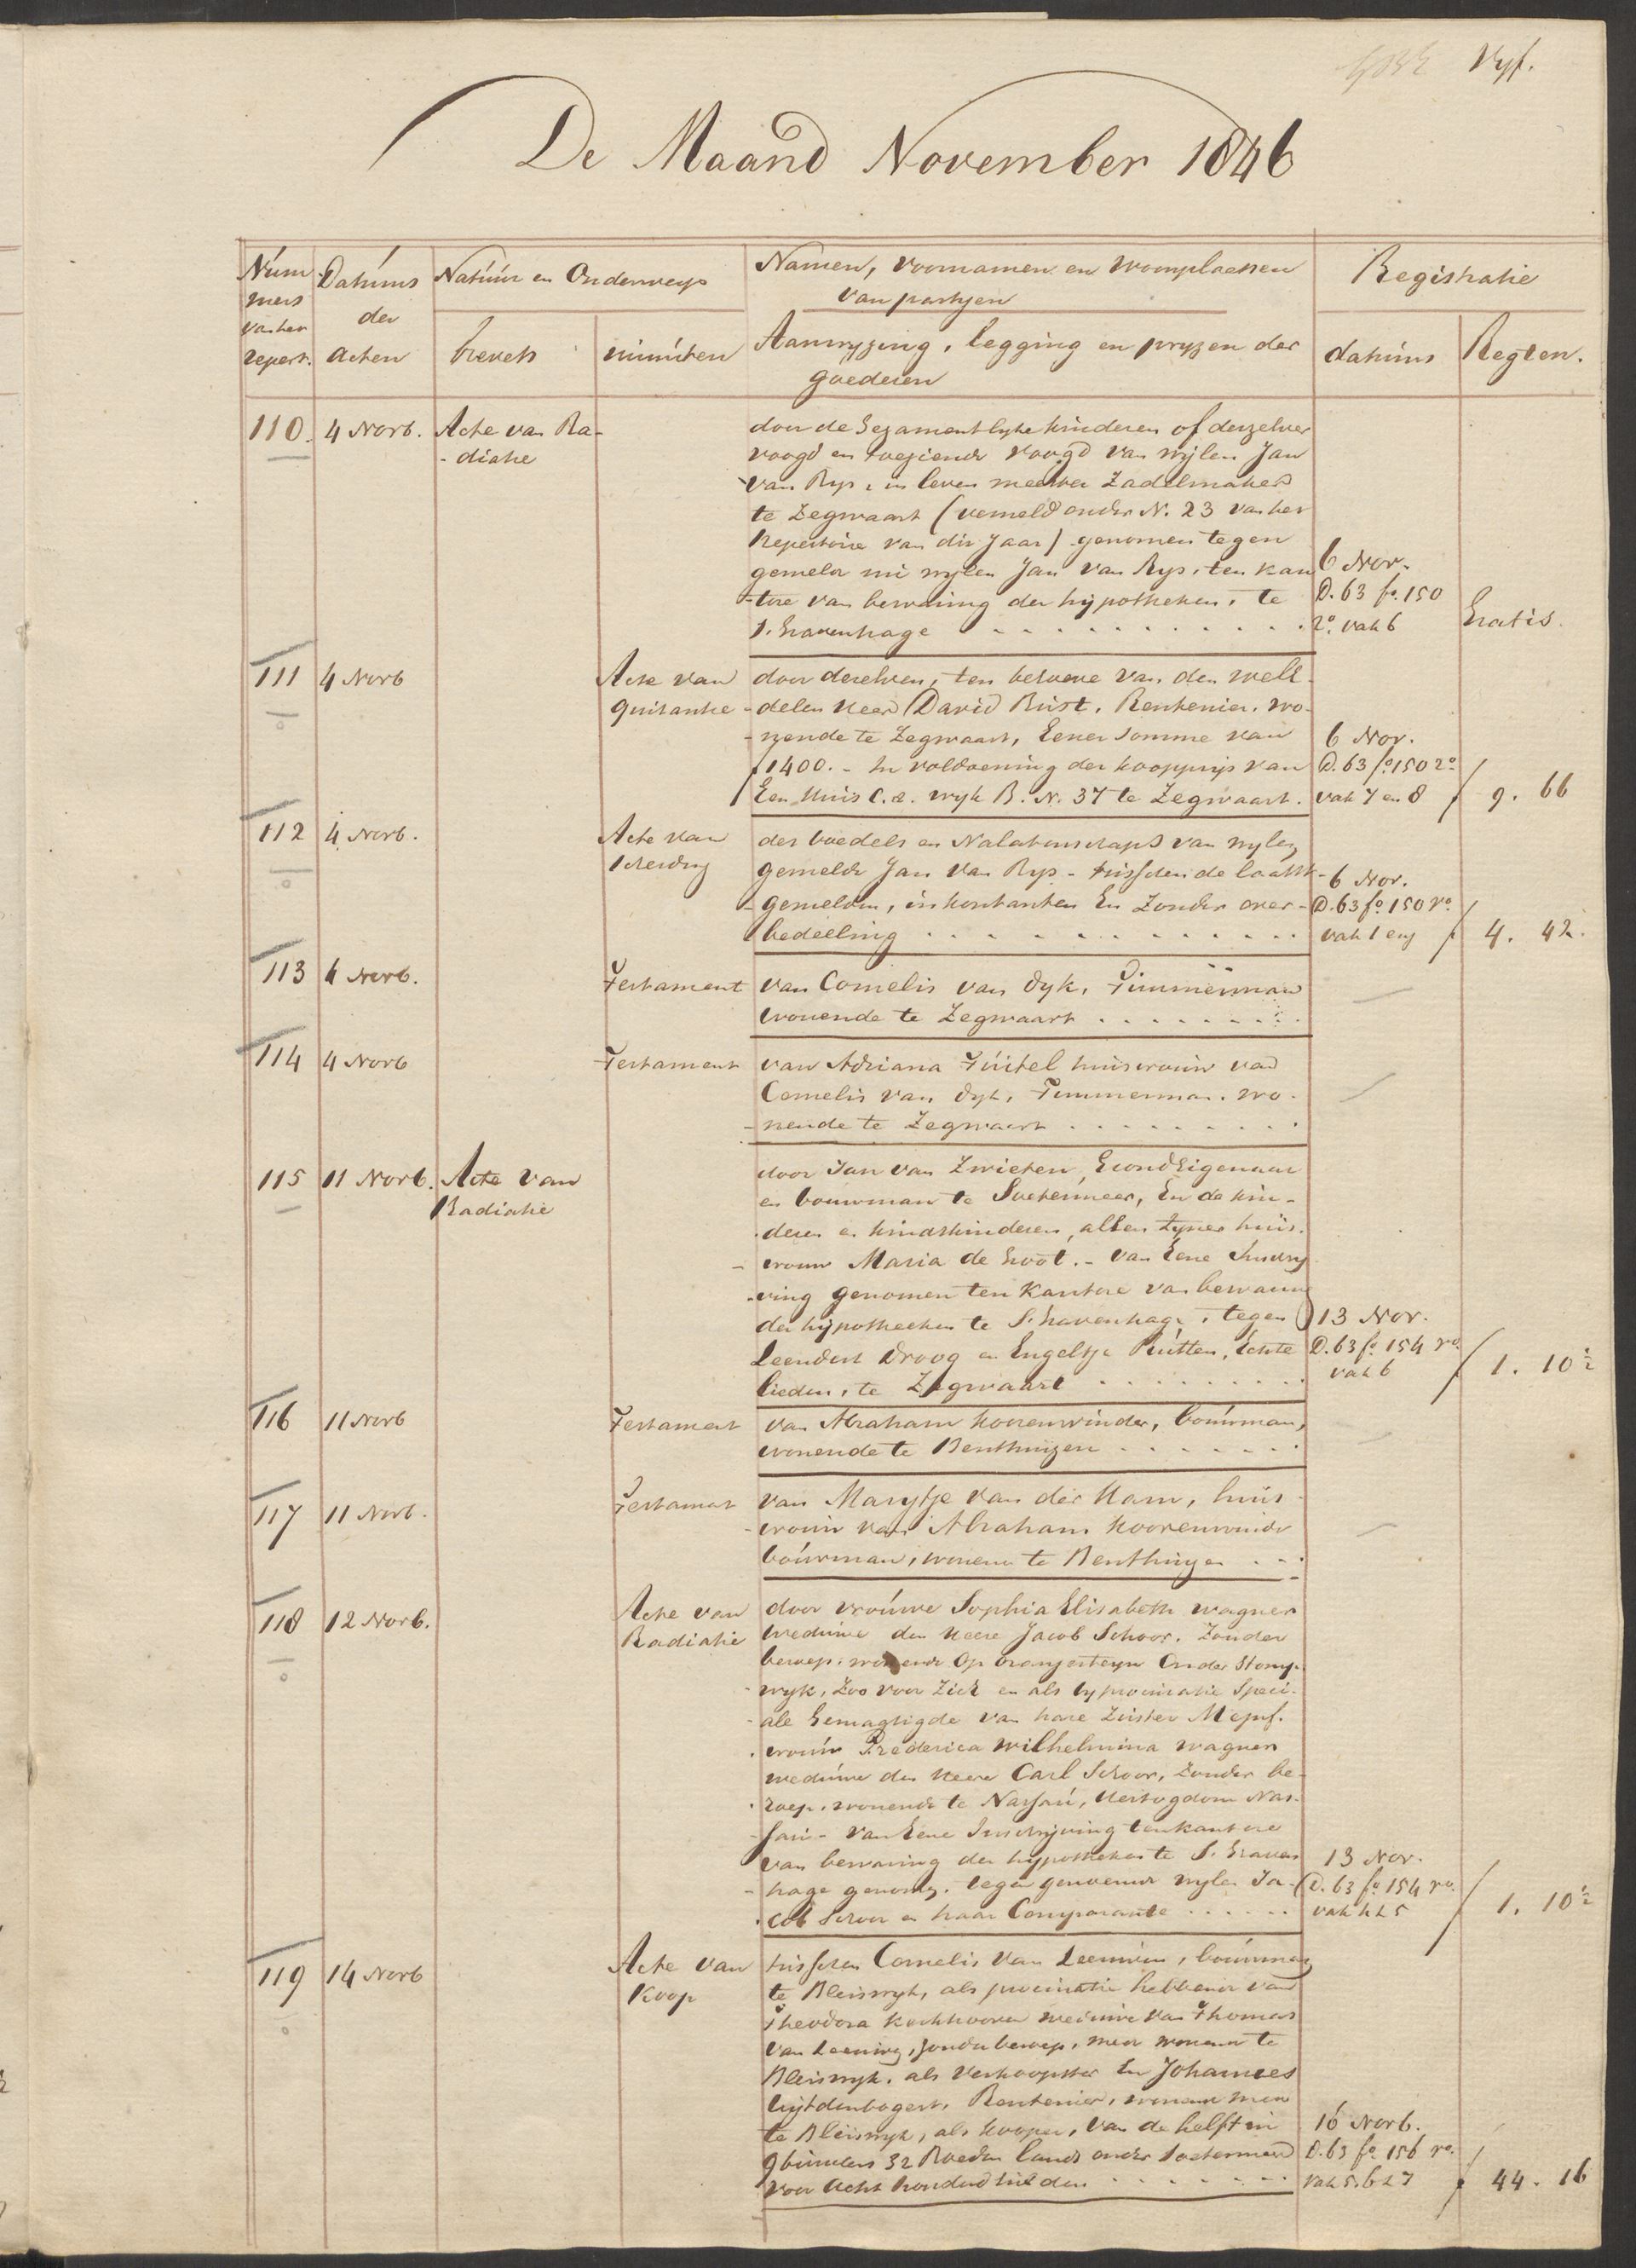 Vyf.
De Maand November 1846
Num
mers
van het
repert.
Datums
der
acten
Natuur en Onderwerp
brevets
minuten
Namen, voornamen en woonplaatsen
van partyen
Aanwyzing, legging en pryzen der
goederen
Registratie
datums
Regten.
110. 4 Novb. Acte van Ra-
-diatie
door de Gezamentlyke kinderen of derzelver
voogd en toeziende voogd van wylen Jan
van Ryp, in leven meester Zadelmaker
te Zegwaart (vermeld onder N. 23 van het
Repertoire van dit Jaar) genomen tegen
gemelde nu wylen Jan van Ryp, ten kan
-tore van bewaring der hypotheken, te
s. Gravenhage
6 Nov.
D. 63 fo. 150
ro. vak 6
Gratis.
111 4 Novb
Acte van
Quitantie
door dezelven, ten behoeve van den well
-delen Heer David Rust, Rentenier, wo-
-nende te Zegwaart, Eener Somme van
ƒ1400.- In voldoening der koopprys van
Een Huis C.a. wyk B. N. 37 te Zegwaart.
6 Nov.
D. 63 fo 150 ro
vak 7 en 8
ƒ 9. 66
112 4 Novb.
Acte van
Scheiding
des boedels en Nalatenschaps van wylen
gemelde Jan van Ryp - tusschen de laatst-
-gemelden, in kontanten En Zonder over-
bedeeling
6 Nov.
D. 63 fo 150 vo.
vak 1 en
ƒ 4. 42.
113 4 Novb.
Testament
van Cornelis van Dyk, Timmerman
wonende te Zegwaart
114 4 Novb
Testament
van Adriana Tuitel huisvrouw van
Cornelis van Dyk, Timmerman, wo-
-nende te Zegwaart
115 11 Novb. Acte van
Radiatie
door Jan van Zwieten, GrondEigenaar
en bouwman te Soetermeer, En de kin-
-deren en kindskinderen, allen zyner huis-
-vrouw Maria de Groot. - van Eene Inschry
-ving genomen ten Kantore van bewaring
der hypotheeken te S. Gravenhage, tegen
Leendert Droog en Engeltje Rutten, Echte
lieden, te Zegwaart
13 Nov.
D. 63 fo. 154 ro.
vak 6
ƒ 1. 10½
116 11 Novb
Testament
van Abraham Koorenwinder, bouwman,
wonende te Benthuizen
117 11 Novb.
Testament
van Marytje van der Ham, huis-
-vrouw van Abraham Koorenwinder
bouwman, wonende te Benthuizen
118 12 Novb.
Acte van
Radiatie
door vrouwe Sophia Elisabeth Wagner
weduwe den Heere Jacob Schoor, Zonder
beroep, wonende Op Oranjesteyn Onder Stomp-
-wyk, Zoo voor Zich en als by procuratie Speci-
-ale Gemagtigde van hare Zuster Mejuf-
-vrouw Frederica Wilhelmina Wagner
weduwe den Heere Carl Schoor, Zonder be-
-roep, wonende te Nassau, Hertogdom Nas-
-sau - van Eene Inschryving ten kantore
van bewaring der hypotheken te S. Graven
-hage genomen, tegen genoemde wylen Ja-
-cob Schoor en haar Comparante
13 Nov.
D. 63 fo. 154 ro.
vak 4 & 5
ƒ 1. 10½
119 14 Novb
Acte van
Koop
tusschen Cornelis van Leeuwen, bouwman
te Bleiswyk, als procuratie hebbende van
Theodora Kerkhoven weduwe van Thomas
van Leeuwen, zonder beroep, mede wonende te
Bleiswyk, als Verkoopster En Johannes
Uytdenbogert, Rentenier, wonende mede
te Bleiswyk, als kooper, van de helft in
9 bunders 32 Roeden lands onder Soetermeer
voor Acht honderd Gulden
16 Novb.
D. 63 fo 156 ro.
vak 5. 6 & 7
ƒ 44. 16